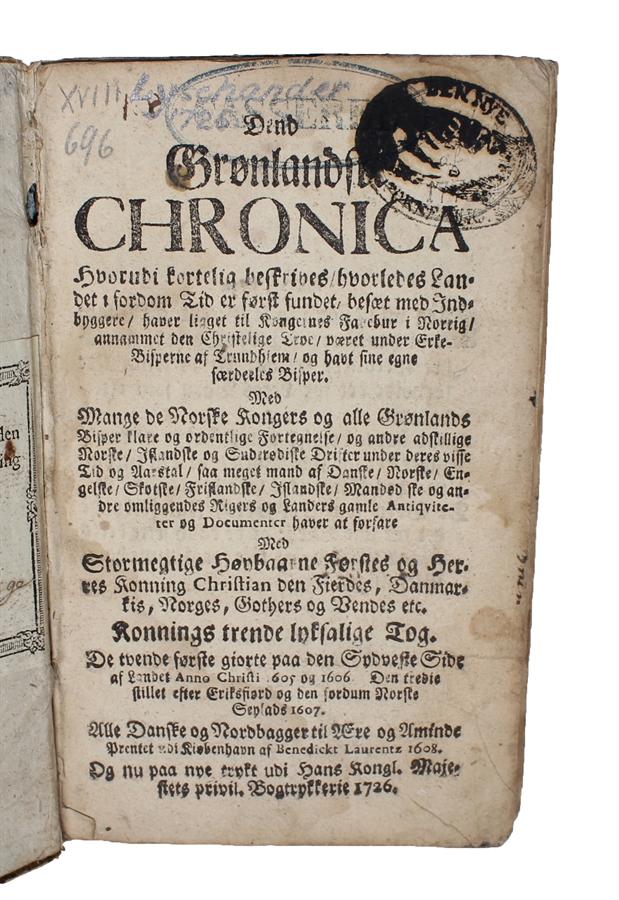 XVIII
696
Lyschander
1726
DEN NYE
Dend
Grønlandske
CHRONICA
Hvorudi kortelig beskrives/hvorledes Lan-
det i fordom Tid er først fundet/ besæt med Ind-
byggere/ haver ligget til Kongernes Fadebur i Norrig/
annammet den Christelige Troe/ været under Erke-
Bisperne af Trundhiem/ og havt sine egne
særdeeles Bisper.
Med
Mange de Norske Kongers og alle Grønlands
Bisper klare og ordentlige Fortegnelse/ og andre adskillige
Norske/ Islandske og Suderødiske Drifter under deres visse
Tid og Aarstal/ saa meget mand af Danske/ Norske/ En-
gelske/ Skotske/ Frislandske/ Islandske/ Mandød ske og an-
dre omliggendes Rigers og Landers gamle Antiqvite-
ter og Documenter haver at forfare
Med
Stormegtige Høvbaarne Førstes og Her-
res Konning Christian den Fierdes, Danmar-
kis, Norges, Gothers og Vendes etc.
Konnings trende lyksalige Tog.
De tvende første giorte paa den Sydveste Side
af Landet Anno Christi 1605 og 1606 Den tredie
stillet efter Eriksfiord og den fordum Norske
Seylads 1607.
Alle Danske og Nordbagger til Ære og Aminde
Prentet udi Kiøbenhavn af Benedickt Laurentz 1608.
Og nu paa nye trykt udi Hans Kongl. Maje-
stets privil. Bogtrykkerie 1726.
den
ing